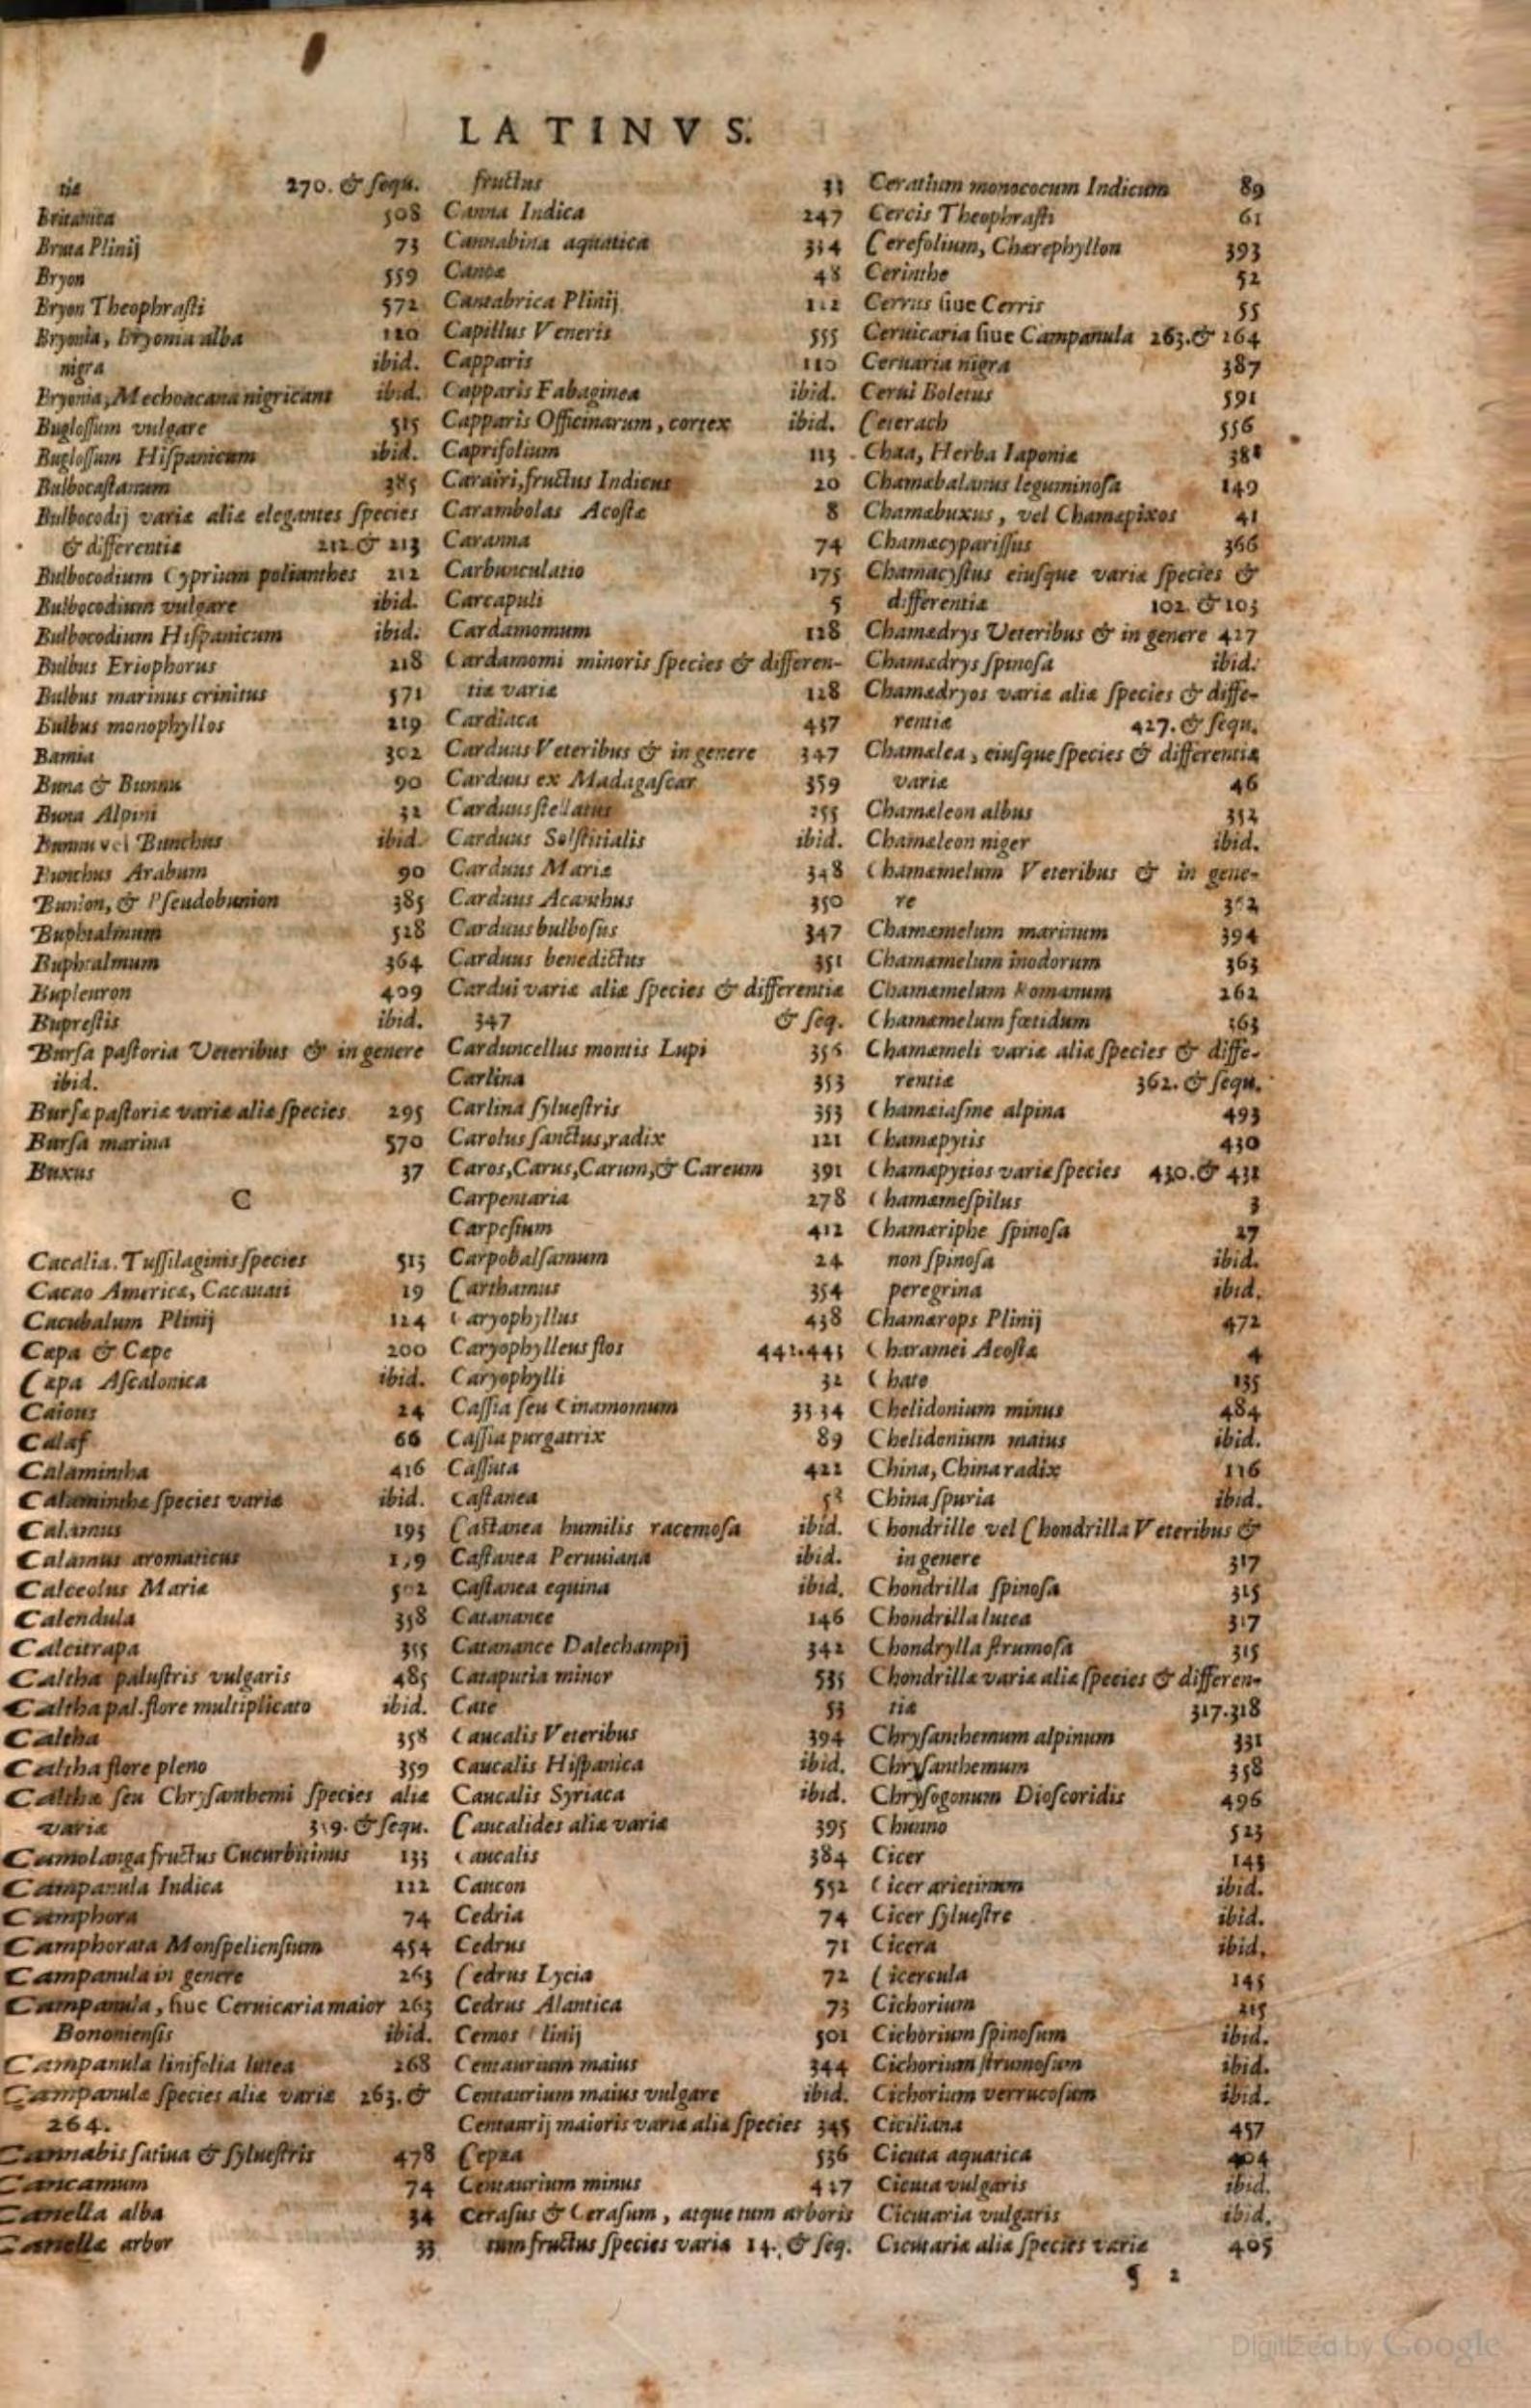 LATINVS.
tiæ 270. & sequ.
Britanica 508
Bruta Plinij 73
Bryon 559
Bryon Theophrasti 572
Bryonia, Bryonia alba 120
nigra ibid.
Bryonia, Mechoacana nigricans ibid.
Buglossum vulgare 515
Buglossum Hispanicum ibid.
Bulbocastanum 385
Bulbocodij variæ aliæ elegantes species
& differentiæ 212. & 213
Bulbocodium Cyprium polianthes 212
Bulbocodium vulgare ibid.
Bulbocodium Hispanicum ibid.
Bulbus Eriophorus 218
Bulbus marinus crinitus 571
Bulbus monophyllos 219
Bamia 302
Buna & Bunnu 90
Buna Alpini 32
Bunnu vel Bunchus ibid.
Bunchus Arabum 90
Bunion, & Pseudobunion 385
Buphtalmum 528
Buphtalmum 364
Bupleuron 409
Buprestis ibid.
Bursa pastoria Veteribus & in genere
ibid.
Bursæ pastoriæ variæ aliæ species 295
Bursa marina 570
Buxus 37
C
Cacalia. Tussilaginis species 513
Cacao Americæ, Cacauati 19
Cucubalum Plinij 124
Cæpa & Cæpe 200
Cæpa Ascalonica ibid.
Caious 24
Calaf 66
Calamintha 416
Calaminthæ species variæ ibid.
Calamus 193
Calamus aromaticus
Calceolus Mariæ 502
Calendula 358
Calcitrapa 355
Caltha palustris vulgaris 485
Caltha pal. flore multiplicato ibid.
Caltha 358
Caltha flore pleno 359
Calthæ seu Chrysanthemi species aliæ
variæ 319. & sequ.
Camolanga fructus Cucurbitinus 133
Campanula Indica 122
Camphora 74
Camphorata Monspeliensium 454
Campanula in genere 263
Campanula, siue Ceruicaria maior 263
Bononiensis ibid.
Campanula linifolia lutea 268
Campanulæ species aliæ variæ 263. &
264.
Cannabis satiua & syluestris 478
Cancamum 74
Canella alba 34
Canella arbor 33
fructus 33
Canna Indica 247
Cannabina aquatica 334
Canoæ 48
Cantabrica Plinij 112
Capillus Veneris 555
Capparis 110
Capparis Fabaginea ibid.
Capparis Officinarum, cortex ibid.
Caprifolium 113
Carairi, fructus Indicus 20
Carambolas Acostæ 8
Caranna 74
Carbunculatio 175
Carcapuli 5
Cardamomum 128
Cardamomi minoris species & differen-
tiæ variæ 128
Cardiaca 457
Carduus Veteribus & in genere 347
Carduus ex Madagascar 359
Carduus stellatus 255
Carduus Solstitialis ibid.
Carduus Mariæ 348
Carduus Acanthus 350
Carduus bulbosus 347
Carduus benedictus 351
Cardui variæ aliæ species & differentiæ
347 & seq.
Carduncellus montis Lupi 356
Carlina 353
Carlina syluestris 353
Carolus sanctus, radix 121
Caros, Carus, Carum, & Careum 391
Carpentaria 278
Carpesium 412
Carpobalsamum 24
Carthamus 354
Caryophyllus 438
Caryophylleus flos 442.443
Caryophylli 32
Cassia seu Cinamomum 33 34
Cassia purgatrix 89
Cassuta 422
Castanea 58
Castanea humilis racemosa ibid.
Castanea Peruuiana ibid.
Castanea equina ibid.
Catanance 146
Catanance Dalechampij 342
Cataputia minor 535
Cate 53
Caucalis Veteribus 394
Caucalis Hispanica ibid.
Caucalis Syriaca ibid.
Caucalides aliæ variæ 395
Caucalis 384
Caucon 552
Cedria 74
Cedrus 71
Cedrus Lycia 72
Cedrus Alantica 73
Cemos Plinij 501
Centaurium maius 344
Centaurium maius vulgare ibid.
Centaurij maioris variæ aliæ species 345
Cepæa 536
Centaurium minus 427
Cerasus & Cerasum, atque tum arboris
tum fructus species variæ 14. & seq.
Ceratium monococum Indicum 89
Cercis Theophrasti 61
Cerefolium, Chærephyllon 393
Cerinthe 52
Cerrus siue Cerris 55
Ceruicaria siue Campanula 263. & 264
Ceruaria nigra 387
Cerui Boletus 591
Ceterach 556
Chaa, Herba Iaponiæ 388
Chamæbalanus leguminosa 149
Chamæbuxus, vel Chamæpixos 41
Chamæcyparissus 366
Chamæcystus eiusque variæ species &
differentiæ 102. & 103
Chamædrys Veteribus & in genere 427
Chamædrys spinosa ibid.
Chamædryos variæ aliæ species & diffe-
rentiæ 427. & sequ.
Chamælea, eiusque species & differentiæ
variæ 46
Chamæleon albus 352
Chamæleon niger ibid.
Chamæmelum Veteribus & in gene-
re 362
Chamæmelum marinum 394
Chamæmelum inodorum 363
Chamæmelum Romanum 262
Chamæmelum fœtidum 363
Chamæmeli variæ aliæ species & diffe-
rentiæ 362. & sequ.
Chamæiasme alpina 493
Chamæpytis 430
Chamæpytios variæ species 430. & 431
Chamæmespilus 3
Chamæriphe spinosa 27
non spinosa ibid.
peregrina ibid.
Chamærops Plinij 472
Charamei Acostæ 4
Chate 135
Chelidonium minus 484
Chelidonium maius ibid.
China, China radix 116
China spuria ibid.
Chondrille vel Chondrilla Veteribus &
in genere 317
Chondrilla spinosa 315
Chondrilla lutea 317
Chondrylla strumosa 315
Chondrillæ variæ aliæ species & differen-
tiæ 317.318
Chrysanthemum alpinum 331
Chrysanthemum 358
Chrysogonum Dioscoridis 496
Chunno 523
Cicer 143
Cicer arietinum ibid.
Cicer syluestre ibid.
Cicera ibid.
Cicercula 145
Cichorium
Cichorium spinosum ibid.
Cichorium strumosum ibid.
Cichorium verrucosum ibid.
Ciciliana 457
Cicuta aquatica 404
Cicuta vulgaris ibid.
Cicutaria vulgaris ibid.
Cicutariæ aliæ species variæ 405
¶ 2
Digitized by Google